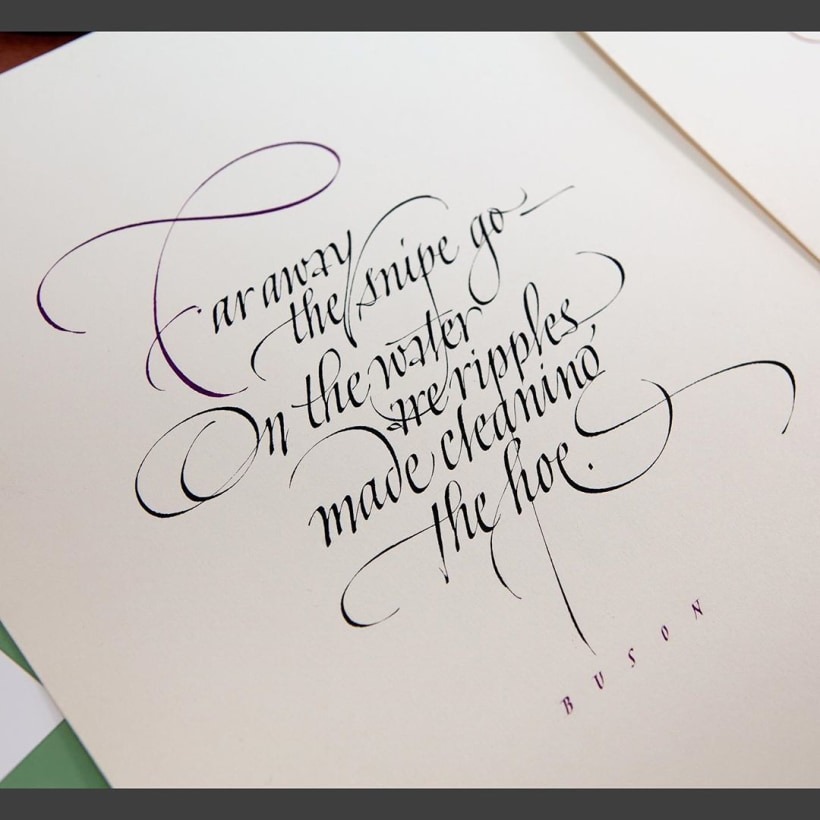 Far away
the snipe go—
On the water
are ripples,
made cleaning
the hoe.
BUSON